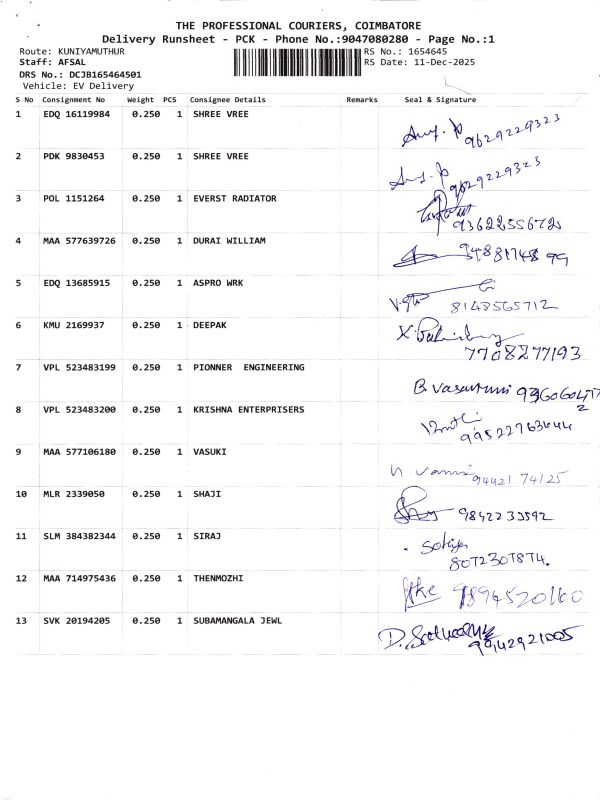 THE PROFESSIONAL COURIERS, COIMBATORE
Delivery Runsheet - PCK - Phone No.:9047080280 - Page No.:1
Route: KUNIYAMUTHUR RS No.: 1654645
Staff: AFSAL RS Date: 11-Dec-2025
DRS No.: DCJB165464501
Vehicle: EV Delivery
S No Consignment No Weight PCS Consignee Details Remarks Seal & Signature
1 EDQ 16119984 0.250 1 SHREE VREE 9629229323
2 PDK 9830453 0.250 1 SHREE VREE 9629229323
3 POL 1151264 0.250 1 EVERST RADIATOR
4 MAA 577639726 0.250 1 DURAI WILLIAM
5 EDQ 13685915 0.250 1 ASPRO WRK 8148565712
6 KMU 2169937 0.250 1 DEEPAK 7708277193
7 VPL 523483199 0.250 1 PIONNER ENGINEERING
8 VPL 523483200 0.250 1 KRISHNA ENTERPRISERS
9 MAA 577106180 0.250 1 VASUKI 94421 74125
10 MLR 2339050 0.250 1 SHAJI 9842233592
11 SLM 384382344 0.250 1 SIRAJ 8072307874.
12 MAA 714975436 0.250 1 THENMOZHI 9894520160
13 SVK 20194205 0.250 1 SUBAMANGALA JEWL